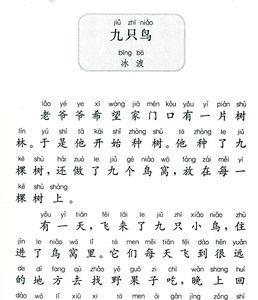 jiǔ zhī niǎo
九只鸟
bīng bō
冰 波
lǎo yé ye xī wàng jiā mén kǒu yǒu yí piàn shù
老爷爷希望家门口有一片树
lín yú shì tā kāi shǐ zhòng shù tā zhòng le jiǔ
林。于是他开始种树。他种了九
kē shù hái zuò le jiǔ gè niǎo wō fàng zài měi yì
棵树，还做了九个鸟窝，放在每一
kē shù shàng
棵树上。
yǒu yì tiān fēi lái le jiǔ zhī xiǎo niǎo zhù
有一天，飞来了九只小鸟，住
jìn le niǎo wō lǐ tā men měi tiān fēi dào hěn yuǎn
进了鸟窝里。它们每天飞到很远
de dì fang qù zhǎo yě guǒ zi chī wǎn shang huí
的地方去找野果子吃，晚上回